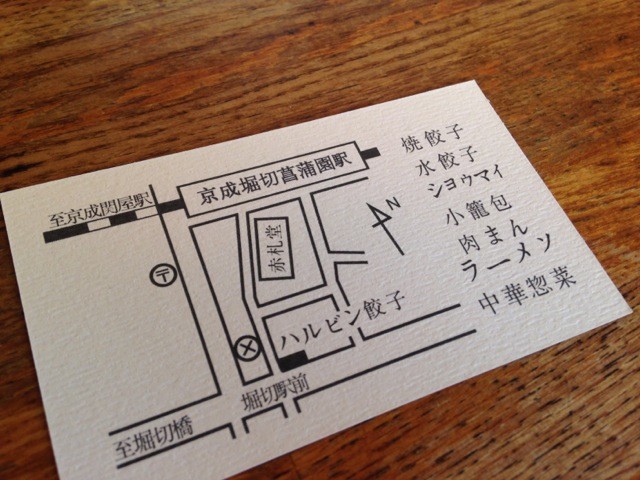 京成堀切菖蒲園駅
至京成関屋駅
赤札堂
N
〒
ハルビン餃子
堀切駅前
至堀切橋
焼餃子
水餃子
シヨウマイ
小籠包
肉まん
ラーメン
中華惣菜